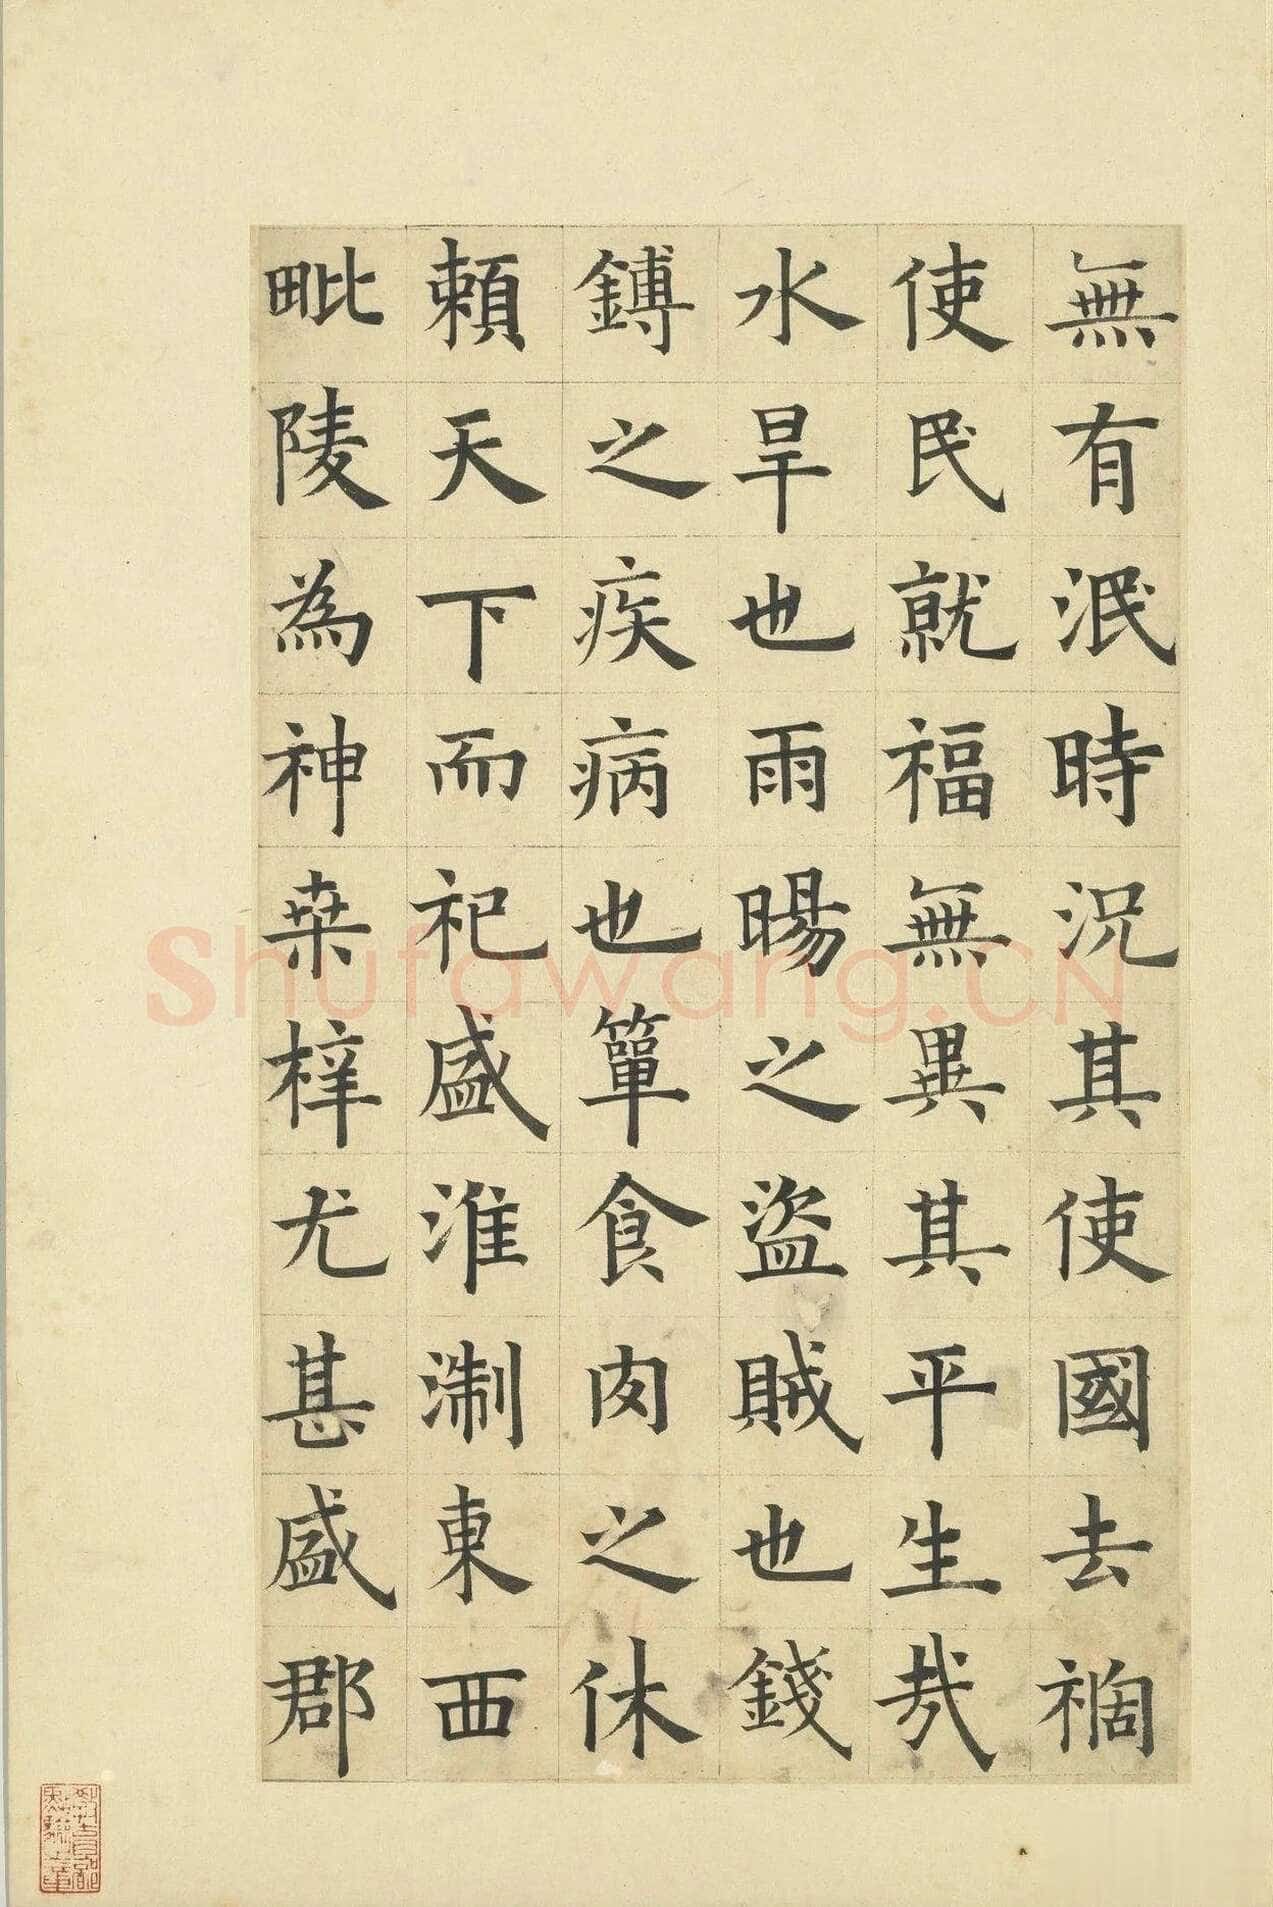 無有泯時況其使國去禍
使民就福無異其平生㢤
水旱也雨暘之盜賊也錢
鎛之疾病也簞食肉之休
賴天下而祀盛淮淛東西
毗陵為神桒梓尤甚盛郡
Shufawang.CN